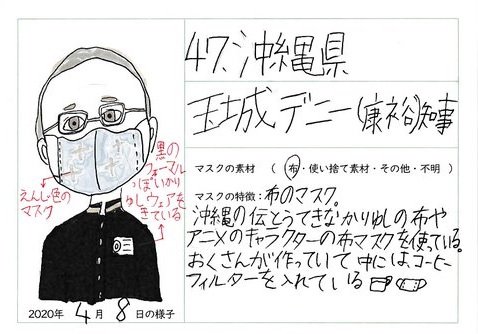 47. 沖縄県
玉城デニー(康裕)知事
マスクの素材 ( 布・使い捨て素材・その他・不明 )
マスクの特徴:布のマスク。
沖縄の伝とうてきなかりゆしの布や
アニメのキャラクターの布マスクを使っている。
おくさんが作っていて中にはコーヒー
フィルターを入れている
黒の
フォーマル
っぽいかり
ゆしウェアを
きている
えんじ色の
マスク
2020年 4月 8日の様子